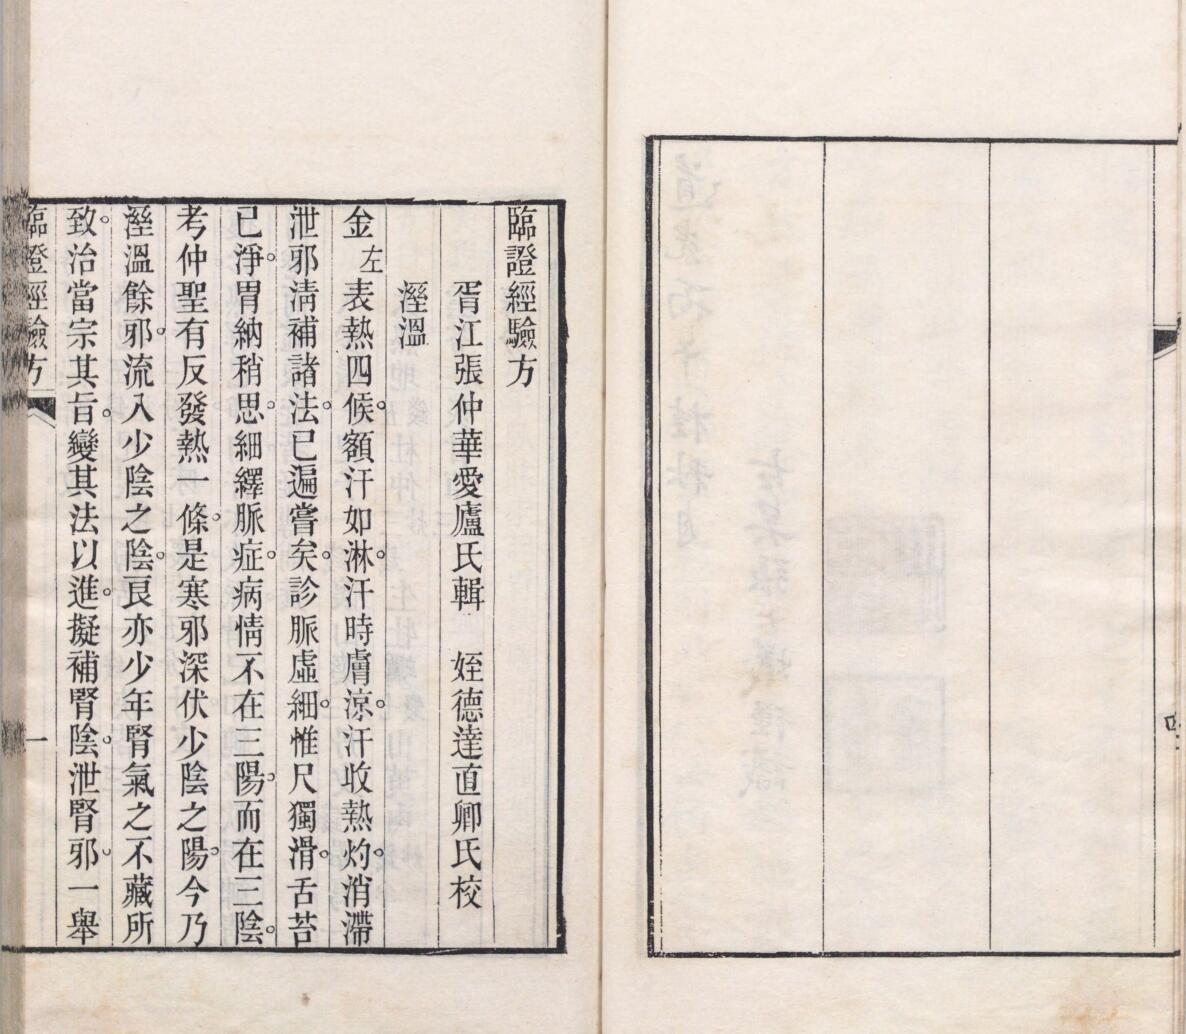 臨證經驗方
胥江張仲華愛廬氏輯　姪德達直卿氏校
溼溫
金左表熱四候額汗如淋汗時膚涼汗收熱灼消滯
泄邪淸補諸法已遍嘗矣診脈虛細惟尺獨滑舌苔
已淨胃納稍思細繹脈症病情不在三陽而在三陰
考仲聖有反發熱一條是寒邪深伏少陰之陽今乃
溼溫餘邪流入少陰之陰良亦少年腎氣之不藏所
致治當宗其旨變其法以進擬補腎陰泄腎邪一舉
臨證經驗方
一